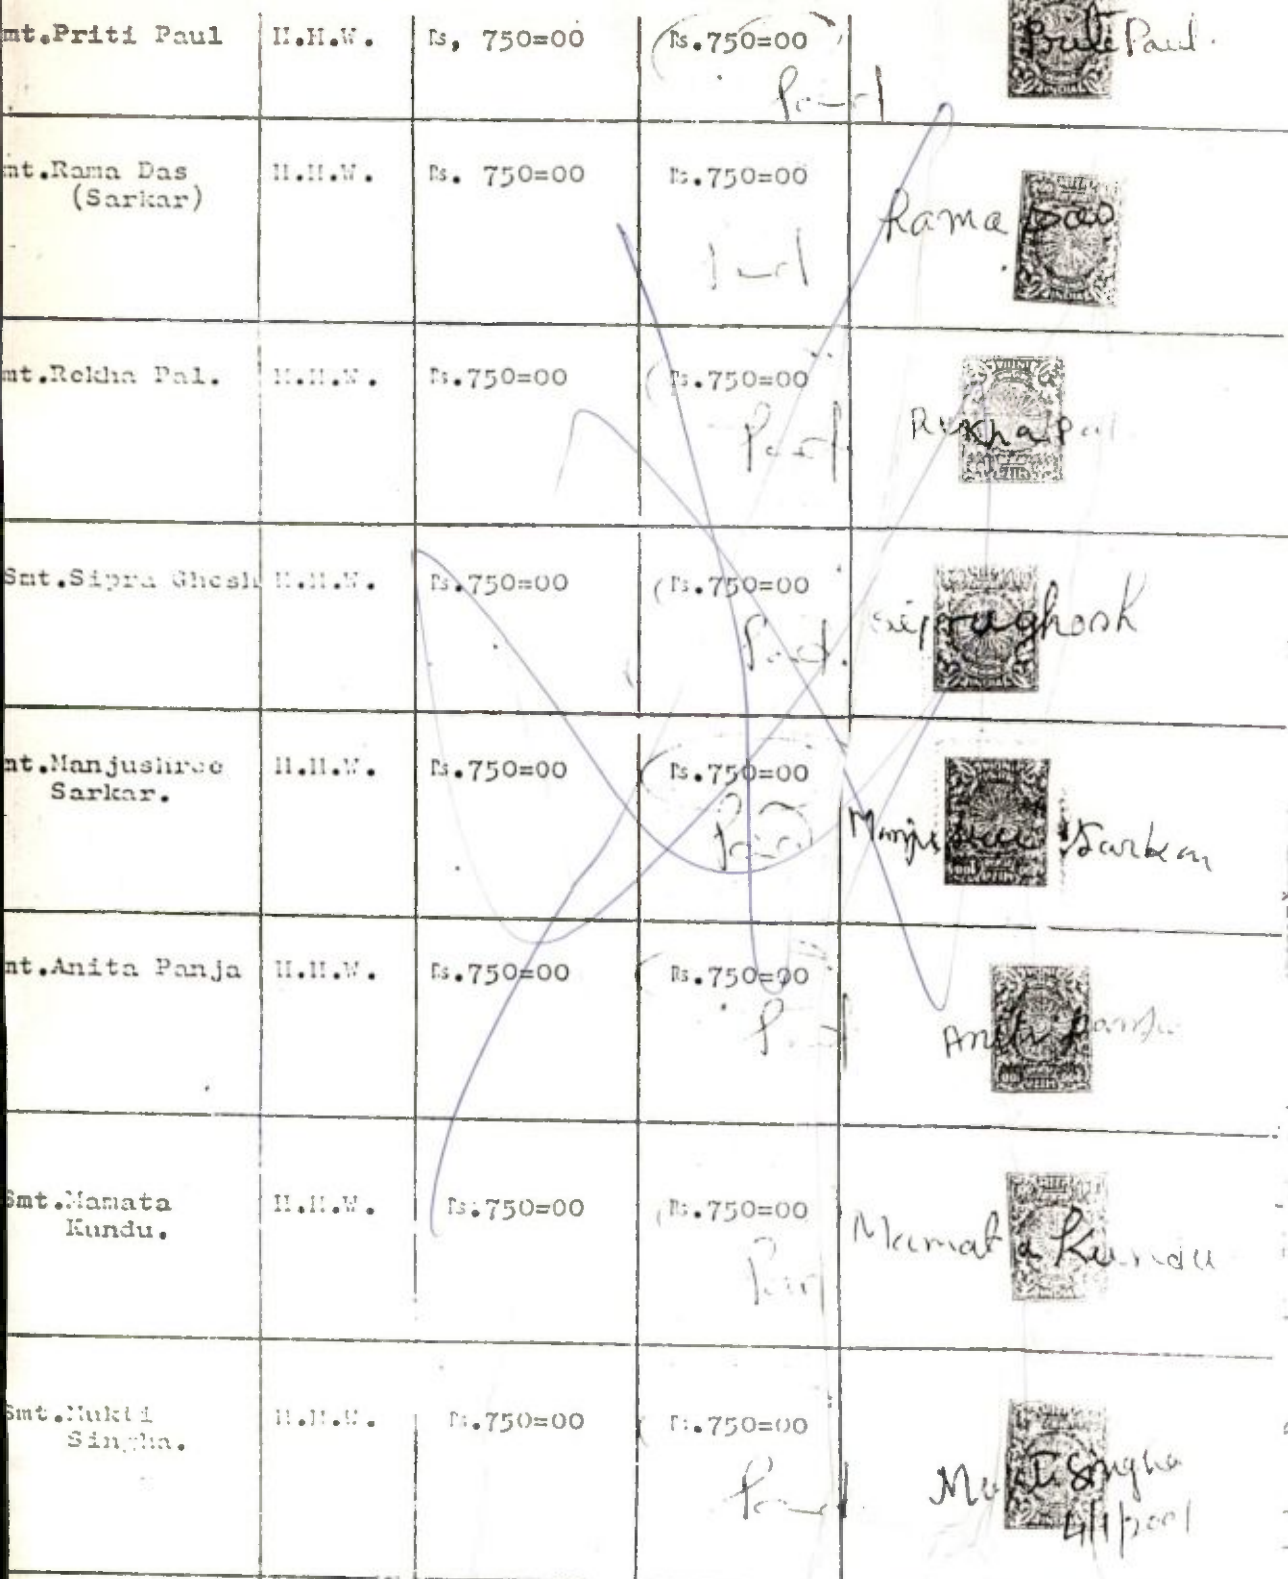 mt.Priti Paul H.H.W. Rs, 750=00 Rs.750=00 Priti Paul.
Paid
mt.Rama Das H.H.W. Rs. 750=00 Rs.750=00
(Sarkar) Rama Das
Paid
INDIA
mt.Rekha Pal. H.H.W. Rs.750=00 Rs.750=00
Paid Rekha Pal
Smt.Sipra Ghosh H.H.W. Rs.750=00 Rs.750=00
Paid. Sipra ghosh
mt.Manjushree H.H.W. Rs.750=00 Rs.750=00
Sarkar.
Paid Manjushree Sarkar
mt.Anita Panja H.H.W. Rs.750=00 Rs.750=00
Paid Anita Panja
Smt.Mamata H.H.W. Rs.750=00 Rs.750=00
Kundu. Mamata Kundu
Paid
Smt.Mukti H.H.W. Rs.750=00 Rs.750=00
Singha.
Paid Mukti Singha
4/1/2001